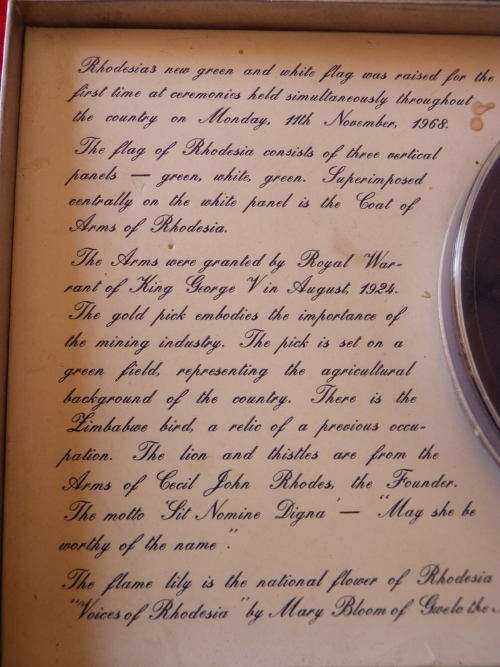 Rhodesias new green and white flag was raised for the
first time at ceremonies held simultaneously throughout
the country on Monday, 11th November, 1968.
The flag of Rhodesia consists of three vertical
panels — green, white, green. Superimposed
centrally on the white panel is the Coat of
Arms of Rhodesia.
The Arms were granted by Royal War-
rant of King George V in August, 1924.
The gold pick embodies the importance of
the mining industry. The pick is set on a
green field, representing the agricultural
background of the country. There is the
Zimbabwe bird, a relic of a previous occu-
pation. The lion and thistles are from the
Arms of Cecil John Rhodes, the Founder.
The motto 'Sit Nomine Digna' — "May she be
worthy of the name".
The flame lily is the national flower of Rhodesia
"Voices of Rhodesia" by Mary Bloom of Gwelo the